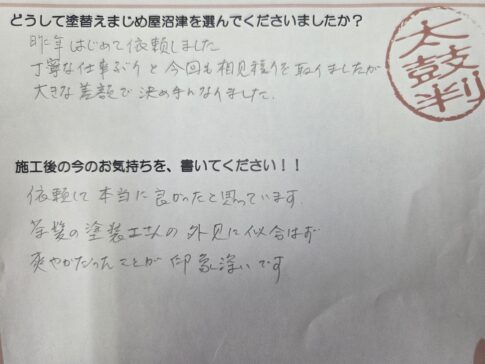 どうして塗替えまじめ屋沼津を選んでくださいましたか？
昨年はじめて依頼しました
丁寧な仕事ぶりと今回も相見積りを取りましたが
大きな差額で決め手となりました。
太鼓判
施工後の今のお気持ちを、書いてください！！
依頼して本当に良かったと思っています。
茶髪の塗装工さんの外見に似合はず
爽やかだったことが印象深いです